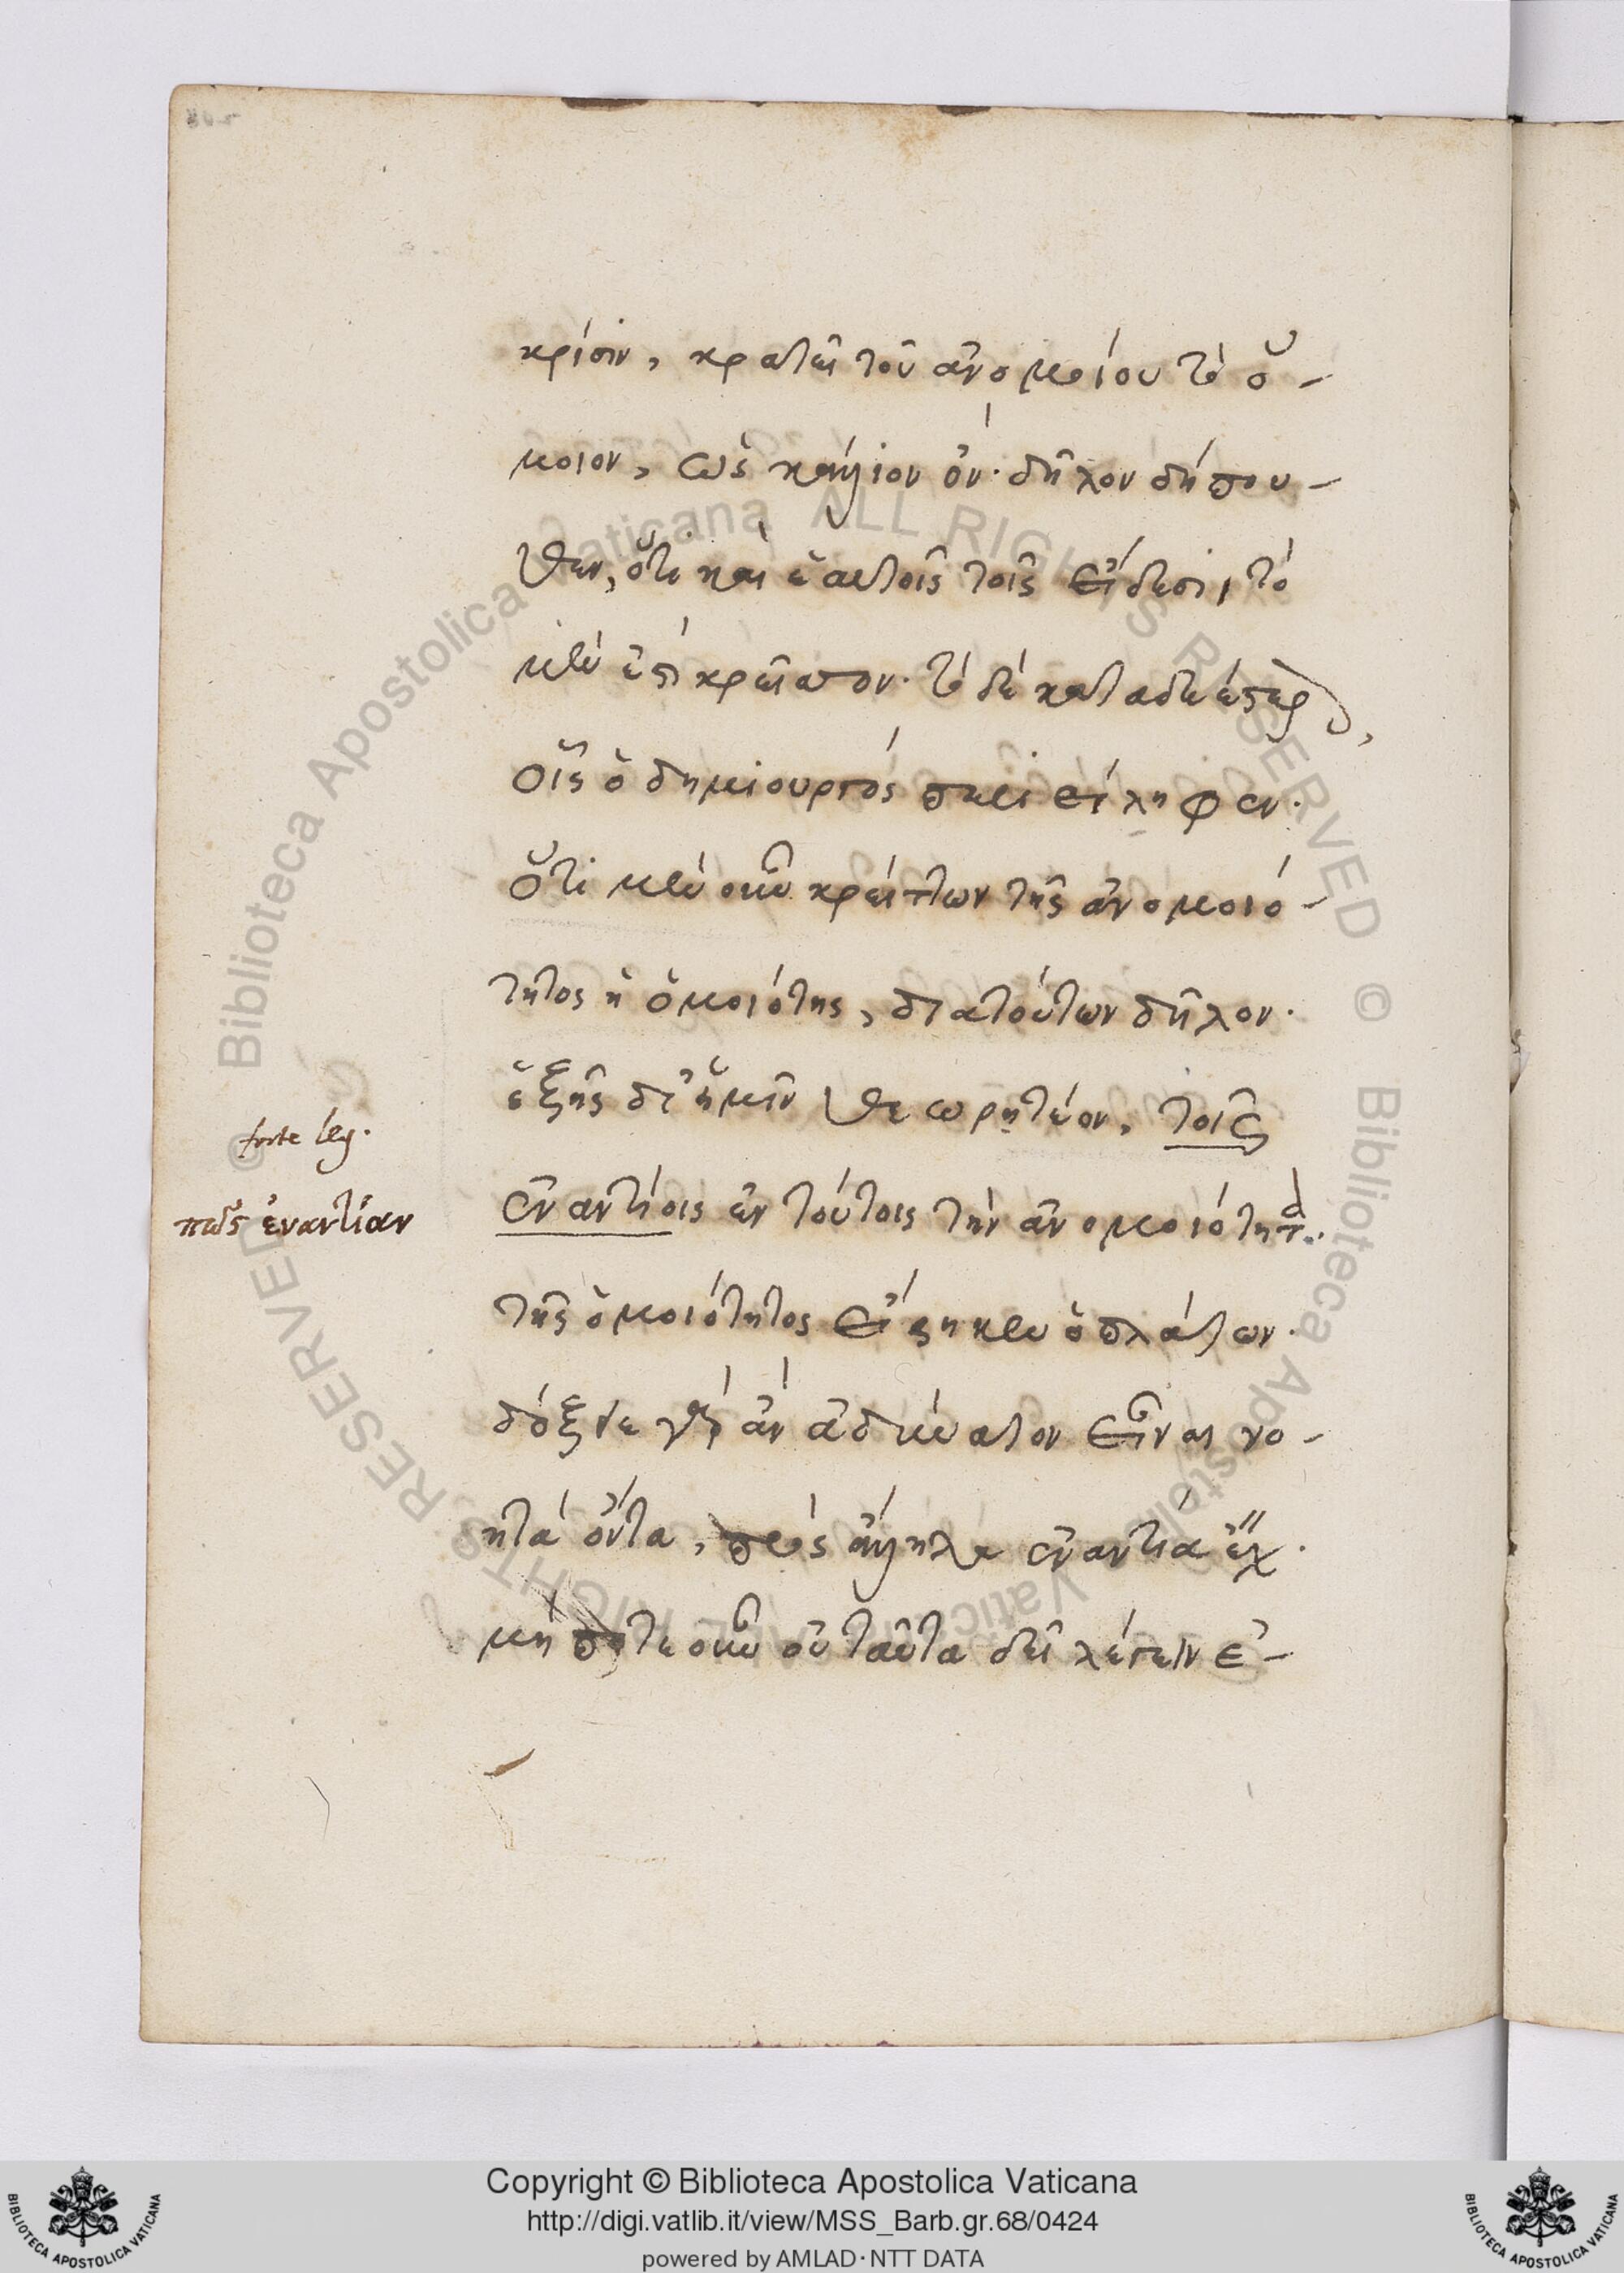 κρίσιν, κρατεῖ τοῦ ἀνομοίου τὸ ὅ-
μοιον, ὡς κάλλιον ὄν· δῆλον δήπου-
θεν, ὅτι καὶ ἐν αὐτοῖς τοῖς εἴδεσι, τὸ
μέν ἐστὶ κρεῖττον· τὸ δὲ καταδεέστερον,
οἷς ὁ δημιουργὸς περιείληφεν·
ὅτι μὲν οὖν κρείττων τῆς ἀνομοιό-
τητος ἡ ὁμοιότης, διατούτων δῆλον·
ἑξῆς δ' ἡμῖν θεωρητέον, τοῖς
ἐναντίοις ἐν τούτοις τὴν ἀνομοιότητα
τῆς ὁμοιότητος εἴρηκεν ὁ πλάτων·
δόξειε γὰρ ἂν ἀδύνατον εἶναι νο-
ητὰ ὄντα, πρὸς ἄλληλα ἐναντία ἔχ.
μήποτε οὖν οὐ ταῦτα δεῖ λέγειν ἐ-
forte leg.
πῶς ἐναντίαν
Copyright © Biblioteca Apostolica Vaticana
http://digi.vatlib.it/view/MSS_Barb.gr.68/0424
powered by AMLAD·NTT DATA
BIBLIOTECA APOSTOLICA VATICANA
BIBLIOTECA APOSTOLICA VATICANA
© Biblioteca Apostolica Vaticana ALL RIGHTS RESERVED
© Biblioteca Apostolica Vaticana ALL RIGHTS RESERVED